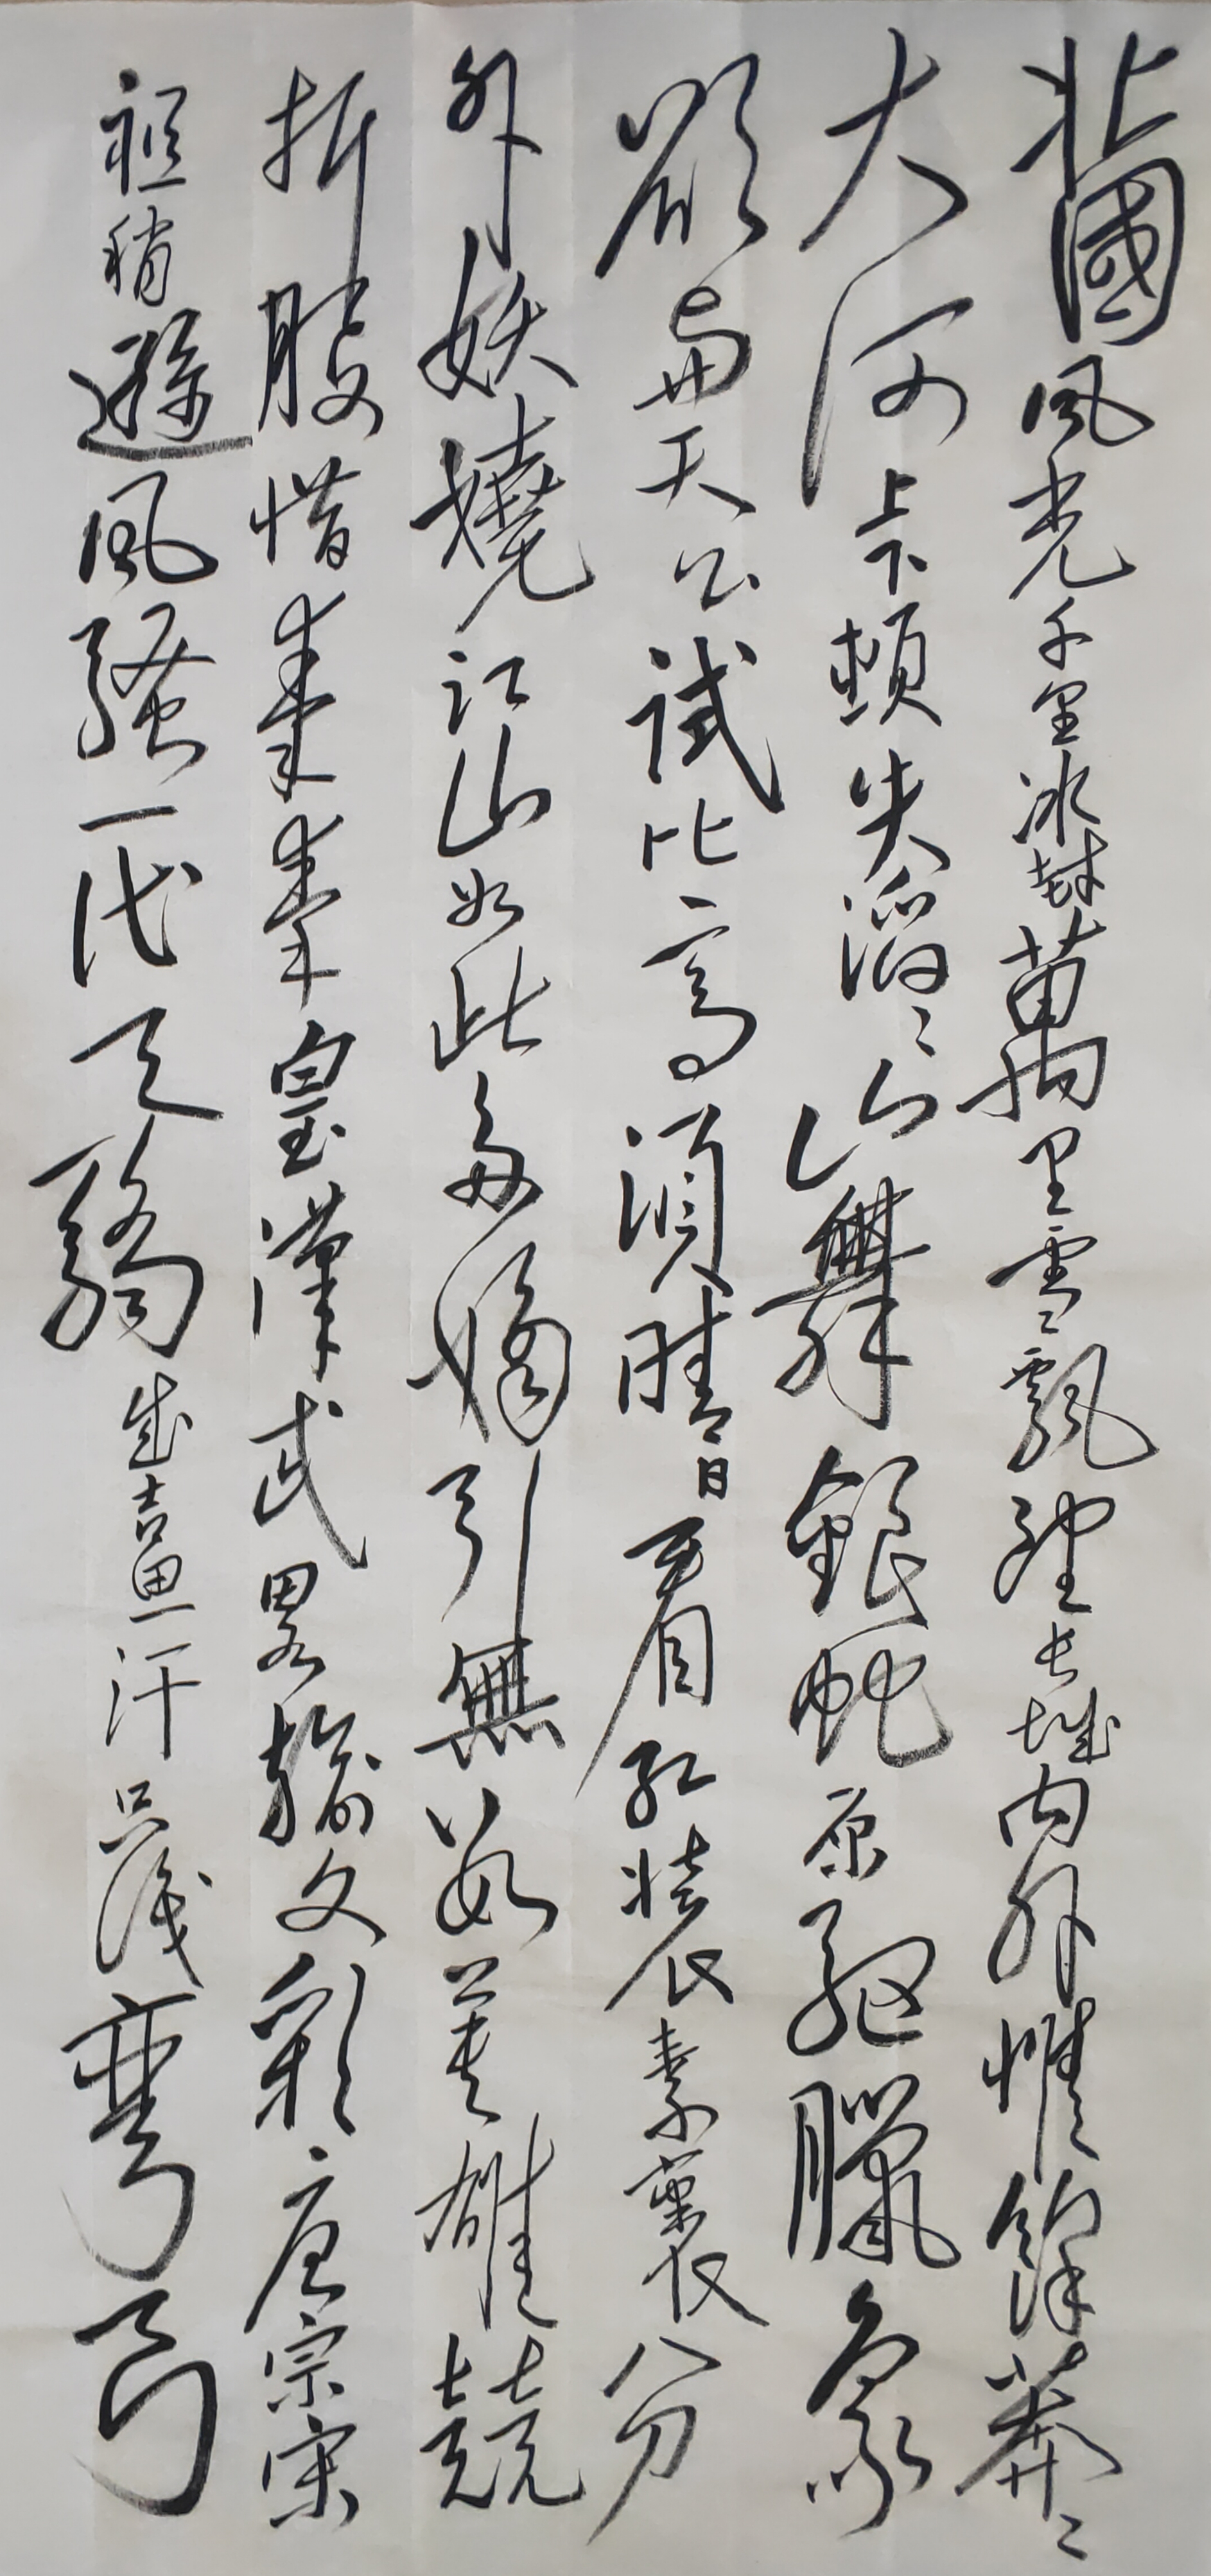 北國風光千里冰封萬里雪飄望長城內外惟餘莽々
大河上下頓失滔々山舞銀蛇原驅臘象
欲與天公試比高須晴日看紅裝素裹分外
外妖嬈江山如此多嬌引無數英雄競
折腰惜秦皇漢武略輸文彩唐宗宋
祖稍遜風騷一代天驕成吉思汗只識彎弓